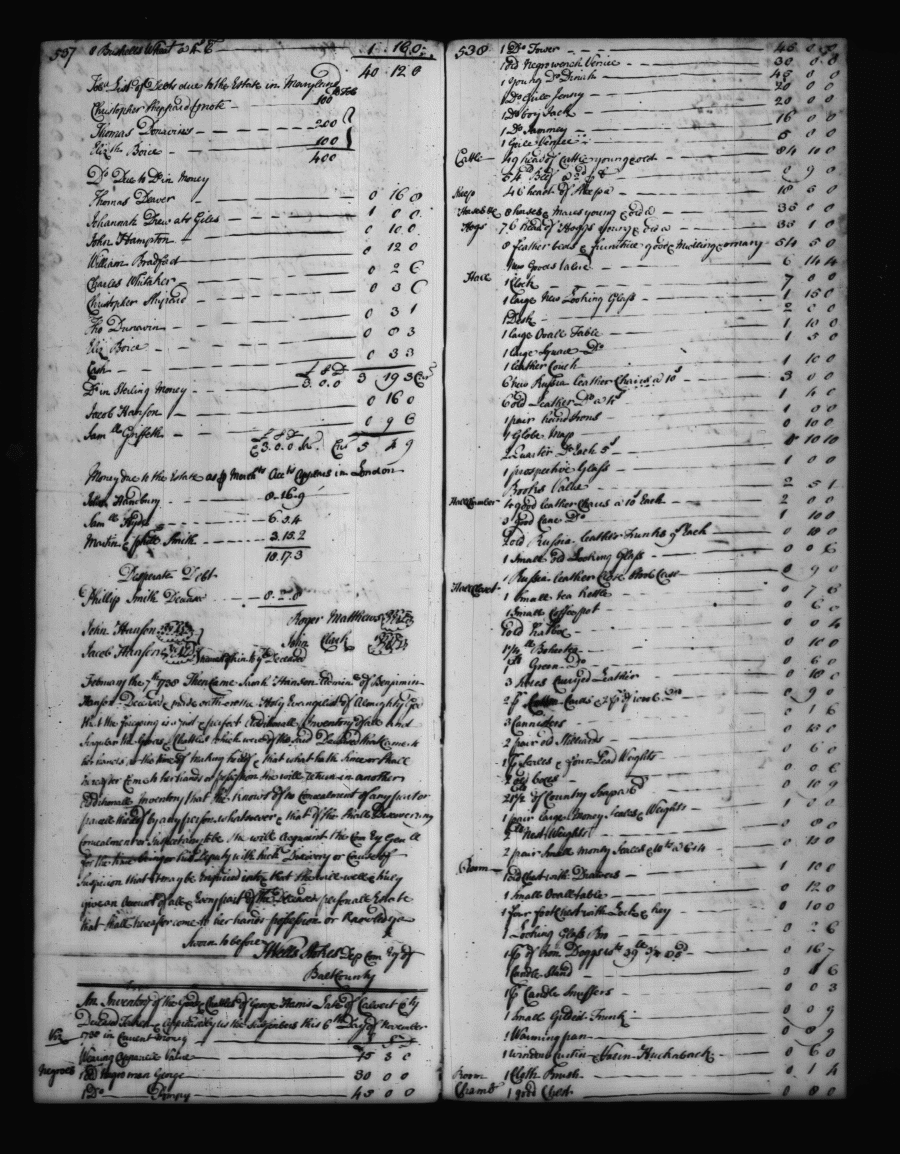 537 8 Bushells Wheat a 4/6 1 16 0
40 12 0
List of Debts due to the Estate in Maryland
Christopher Sheppard p note 100
Thomas Donavins 200
Elizth Boice 100
400
Do Due to Do in Money
Thomas Deaver 0 16 0
Johannah Drew als Giles 1 0 0
John Hampton 0 10 0
William Bradford 0 12 0
Charles Whitaker 0 2 6
Christopher Shepard 0 3 6
Tho Dunavin 0 3 1
Eliz Boice 0 0 3
Cash 0 3 3
£ S D
3.0.0 3 19 3 Curr
Do in Sterling Money
Jacob Hanson 0 16 0
Samll Griffeth 0 9 6
£ S D
£3.0.0 Cur 5 4 9
Money due to the Estate as p Merchts Acct Appears in London
John Hanbury 8.16.9
Samll Hyde 6.5.4
Martin Smith 3.15.2
18.17.3
Desperate Debt
Phillip Smith Deceased 0.2.8
Roger Matthews
John Hanson
John Clark
Jacob Hanson
nearest of kin to ye Deceased
February the 7th 1738 Then Came Sarah Hanson Adminx of Benjamin
Hanson Deceased & made oath on the Holy Evangelist of Almighty God
that the foregoing is a just & perfect Additionall Inventory of all and
Singular the Goods & Chattles which were of the said Deceased that Came to
her hands at the time of making thereof & that what hath Since or Shall
hereafter Come to her hands or possession She will return in another
Additionall Inventory that She knows of no Concealment of any part or
parcell thereof by any person whatsoever & that if She Shall Discover any
Concealment or Suspect any to be She will Acquaint the Com Ry Genll
for the time being or his Deputy with Such Discovery or Cause of
Suspicion that it may be Inquired into & that She will well & truly
give an Account of all & Every part of the Deceased personall Estate
that Shall hereafter come to her hands possession or knowledge
Sworn to before
Wells Stokes Dep Com Ry of
Balt County
An Inventory of the Goods & Chattles of George Harris Late of Calvert City
Deceased Taken & Appraised by us the Subscribers this 6th Day of November
1738 in Current Money £ S D
Viz
Wearing Apparrel Value 15 3 0
Negroes 1 old Negro man George 30 0 0
1 Do Pompy 45 0 0
538 1 Do Tower 45 0 0
1 old Negro wench Venice 30 0 0
1 young Do Dinah 45 0 0
1 Do Girle Jenny 20 0 0
1 Do boy Jack 20 0 0
1 Do Jammey 16 0 0
1 Girle Venice 5 0 0
Cattle 49 head of Cattle young & old 84 10 0
0 9 0
Sheep 46 head of Sheep 18 5 0
Horses &c 8 horses & mares young & old 35 0 0
Hogs 76 head of Hoggs young & old 33 1 0
8 feather beds & furniture good & midling & ornary 54 5 0
New Goods Value 6 14 4
Hall 1 Clock 7 0 0
1 large New Looking Glass 1 15 0
1 Desk 2 0 0
1 large Ovall Table 1 10 0
1 large Square Do 1 5 0
1 leather Couch 1 10 0
6 new Russia leather Chairs a 10s 3 0 0
6 old leather Do a 4s 1 4 0
1 pair handirons 1 0 0
4 Globe Maps 0 10 0
2 Quarter Do Each 5s 0 10 10
1 prospective Glass 1 0 0
Books Value 2 5 1
Hall Chamber 4 good leather Chairs a 10s Each 2 0 0
3 good Cane Do 1 10 0
2 old Russia leather Trunks Each 0 10 0
1 Small old Looking Glass 0 0 6
1 Russia leather Case 0 9 0
Hall Closet 1 Small tea Kettle 0 7 6
1 Small Coffee pot 0 6 0
1 old hatbox 0 0 4
1 1/4 lb Bohea tea 0 10 0
1 lb Green Do 0 6 0
3 Sides Curryed Leather 0 18 0
2 pr Cotton Cards & 2 pr of wool Do 0 9 0
3 Cannisters 0 1 6
2 pair old Stilliards 0 13 0
1 pr Scales & four Lead Weights 0 6 0
2 old boxes 0 0 6
21 1/2 lb of Country Soap 0 10 9
1 pair large Money Scales & Weights 1 0 0
Nest Weights 0 8 0
2 pair Small money Scales & Wts a 6s4 0 10 0
Room 1 old Chest with Drawers 1 10 0
1 Small Ovall table 0 12 0
1 four foot Chest with Lock & key 0 10 0
1 Looking Glass Box 0 2 6
1 pr of Iron Doggs wt 39 lb 0 16 7
1 Candle Stand 0 1 6
1 pr Candle Snuffers 0 0 3
1 Small Gilded Trunk 0 0 9
1 Warming pan 0 0 9
1 window Curtin Huckaback 0 6 0
Room 1 Cloth Brush 0 1 4
Chambr 1 good Chest 0 8 0